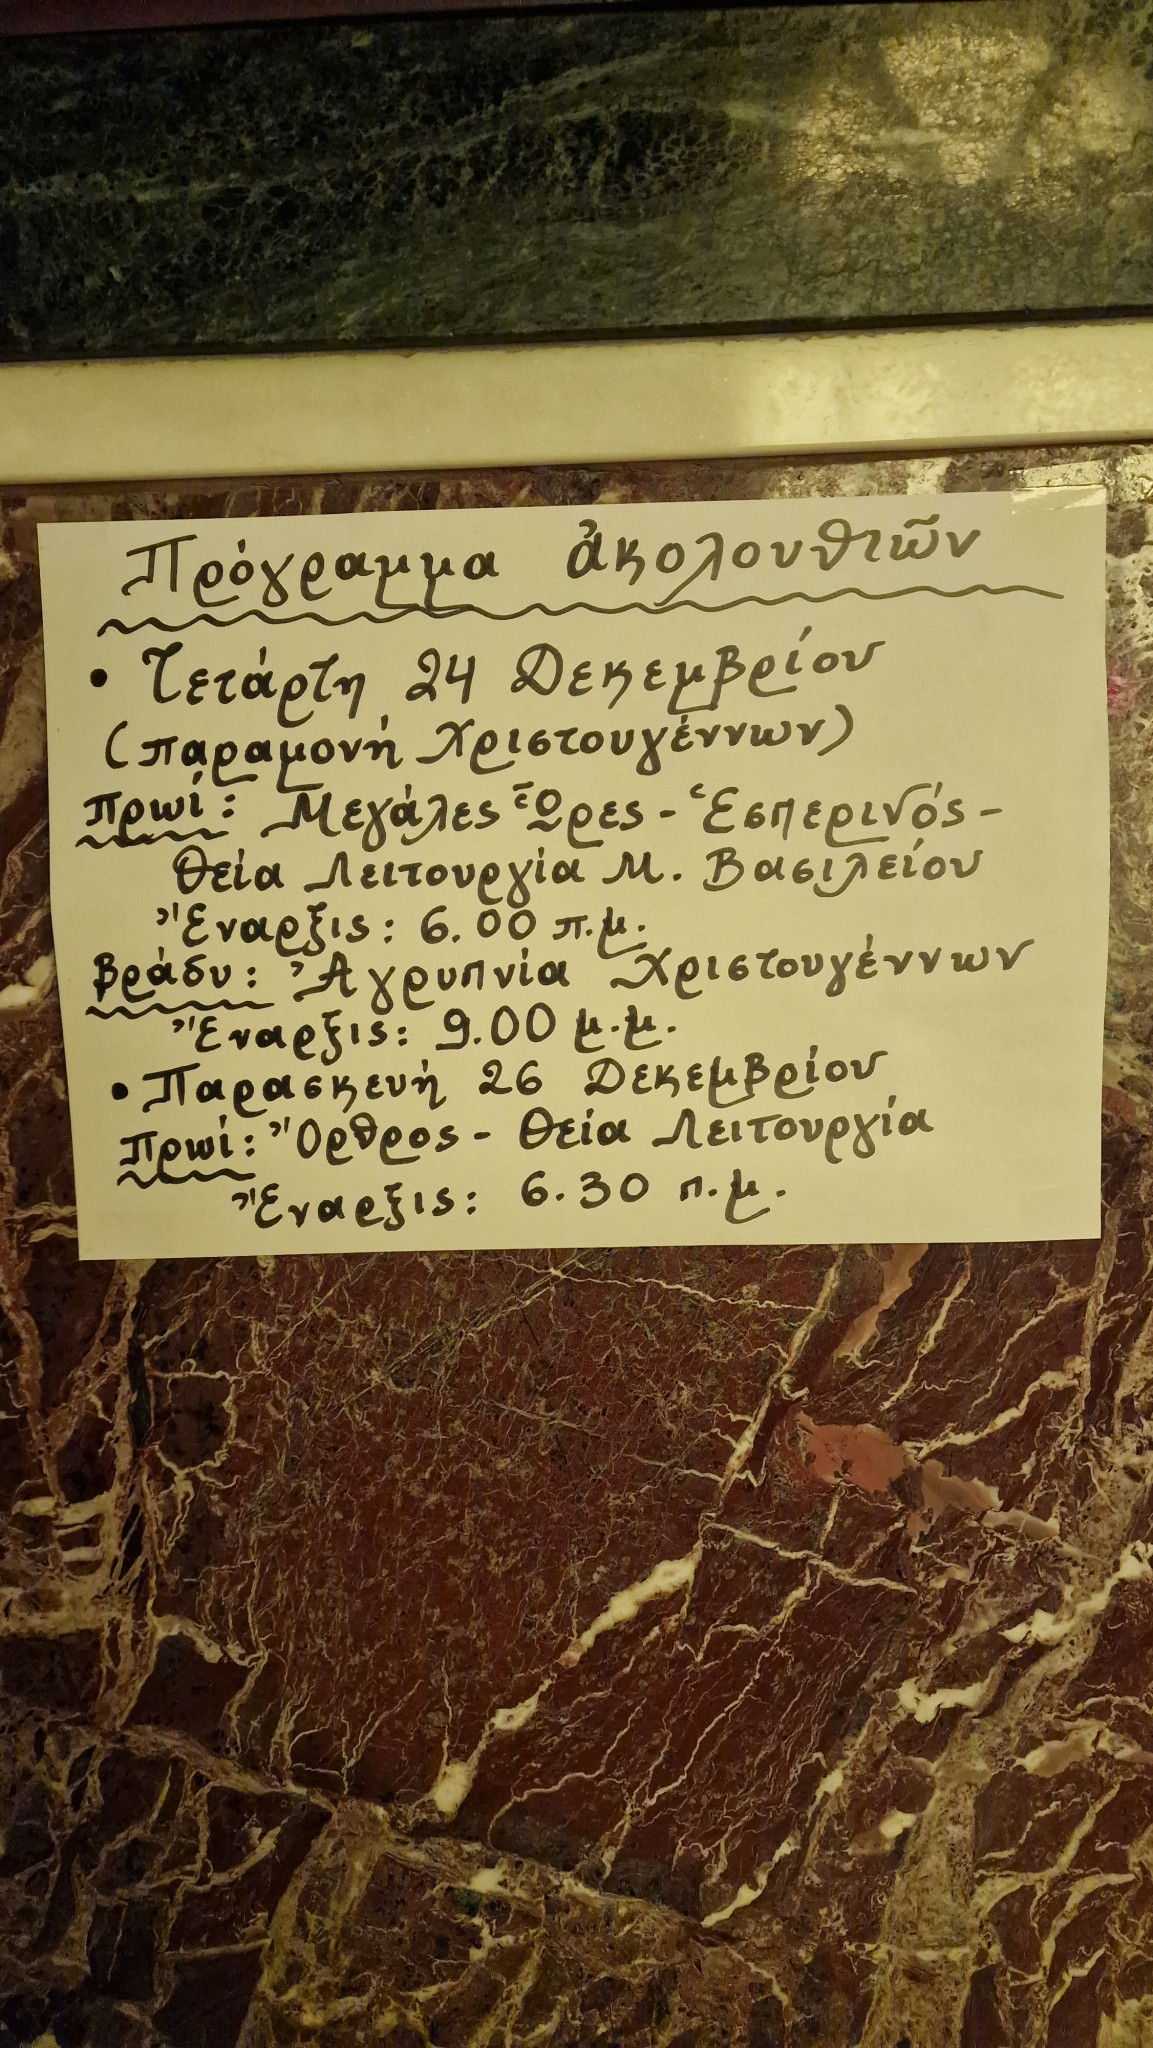 Πρόγραμμα ἀκολουθιῶν
• Τετάρτη 24 Δεκεμβρίου
(παραμονή Χριστουγέννων)
πρωί: Μεγάλες Ὧρες - Ἑσπερινός -
Θεία Λειτουργία Μ. Βασιλείου
Ἔναρξις: 6.00 π.μ.
βράδυ: Ἀγρυπνία Χριστουγέννων
Ἔναρξις: 9.00 μ.μ.
• Παρασκευή 26 Δεκεμβρίου
πρωί: Ὄρθρος - Θεία Λειτουργία
Ἔναρξις: 6.30 π.μ.